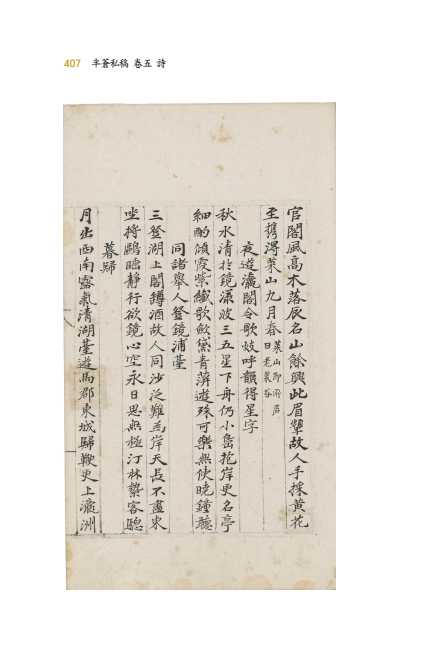 407 半蒼私稿 卷五 詩
官閣風高木落辰名山餘興此眉顰故人手採黃花
至携得萊山九月春萊山即府居日老萊谷
夜遊瀛閣令歌妓呼韻得星字
秋水清於鏡漾波三五星下舟仍小島花岸更名亭
細酌傾霞紫纖歌斂黛青薄遊殊可樂無使曉鐘聽
同諸舉人登鏡浦臺
三登湖上閣罇酒故人同沙泛難為岸天長不盡東
坐將鷗臨靜行欲鏡心空永日思無極汀林繫客驄
暮歸
月出西南露氣清湖臺遊馬郡東城歸鞭更上瀛洲